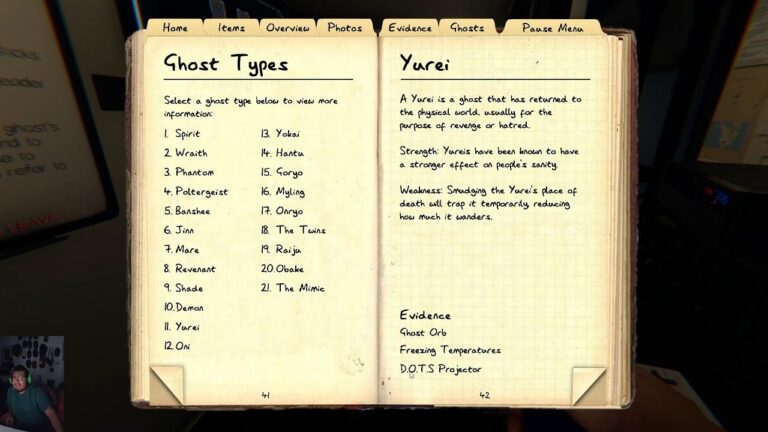 Home Items Overview Photos Evidence Ghosts Pause Menu
Ghost Types
Select a ghost type below to view more
information:
1. Spirit
2. Wraith
3. Phantom
4. Poltergeist
5. Banshee
6. Jinn
7. Mare
8. Revenant
9. Shade
10. Demon
11. Yurei
12. Oni
13. Yokai
14. Hantu
15. Goryo
16. Myling
17. Onryo
18. The Twins
19. Raiju
20. Obake
21. The Mimic
41
Yurei
A Yurei is a ghost that has returned to
the physical world, usually for the
purpose of revenge or hatred.
Strength: Yureis have been known to have
a stronger effect on people's sanity.
Weakness: Smudging the Yurei's place of
death will trap it temporarily, reducing
how much it wanders.
Evidence
Ghost Orb
Freezing Temperatures
D.O.T.S Projector
42
ghost's
to
refer to
LEAVE